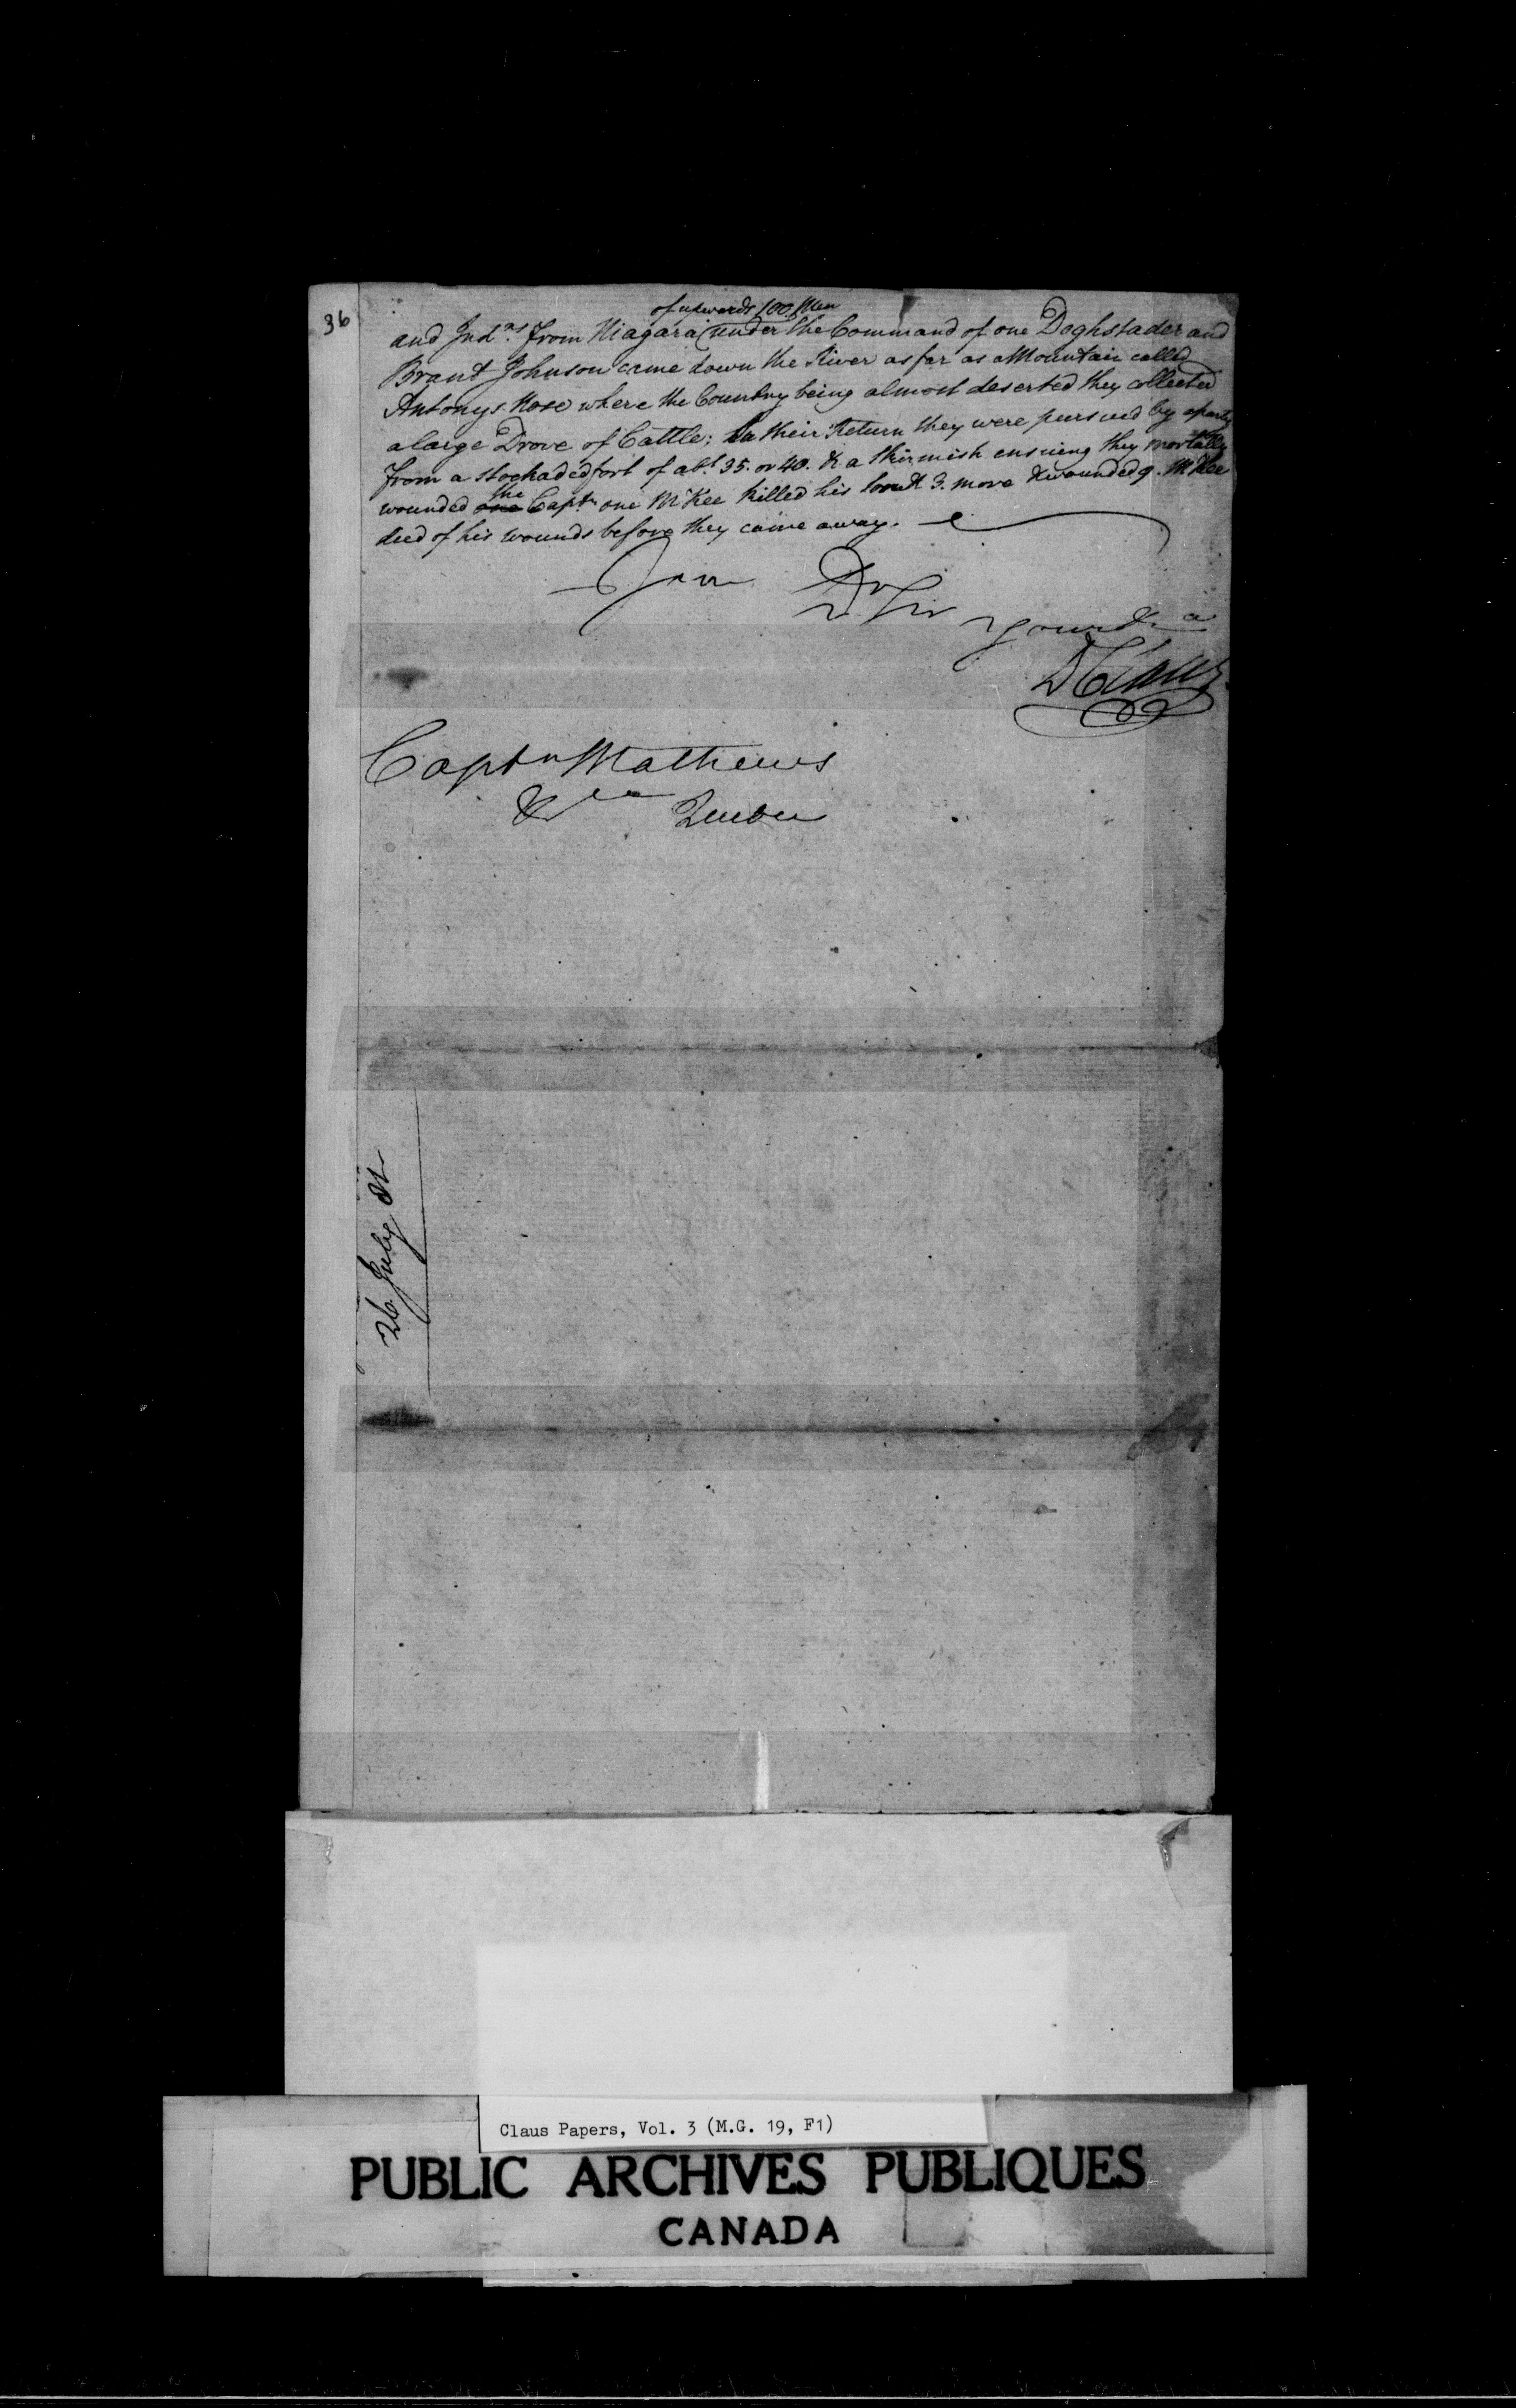 36
of upwards 100 Men
and Indns. from Niagara under the Command of one Doghstader and
Brant Johnson came down the River as far as a Mountain called
Antonys Nose where the Country being almost deserted they collected
a large Drove of Cattle; in their Return they were pursued by a party
from a stockaded fort of abt. 35. or 40. & a skirmish ensuing they mortally
wounded one the Captn. one McKee killed his son & 3. more & wounded 9. McKee
died of his wounds before they came away.
I am Dr Sir
yours &ca
D Claus
Captn Mathews
&ca Quebec
26 July 81
Claus Papers, Vol. 3 (M.G. 19, F1)
PUBLIC ARCHIVES PUBLIQUES
CANADA